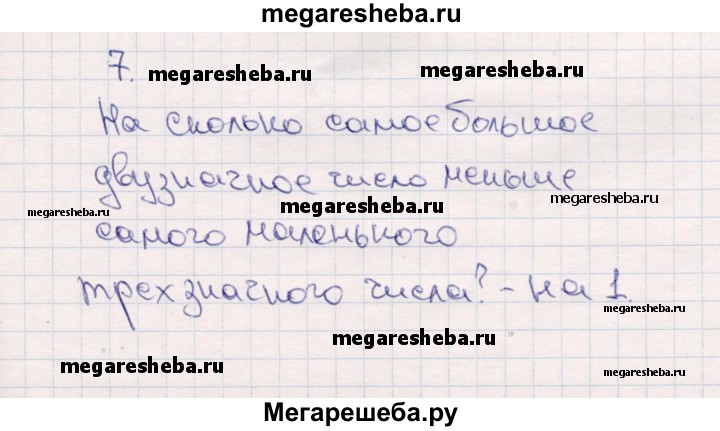 megaresheba.ru
7.
megaresheba.ru
megaresheba.ru
На сколько самое большое
двузначное число меньше
megaresheba.ru
megaresheba.ru
megaresheba.ru
самого маленького
трехзначного числа? - на 1.
megaresheba.ru
megaresheba.ru
megaresheba.ru
megaresheba.ru
Мегарешеба.ру